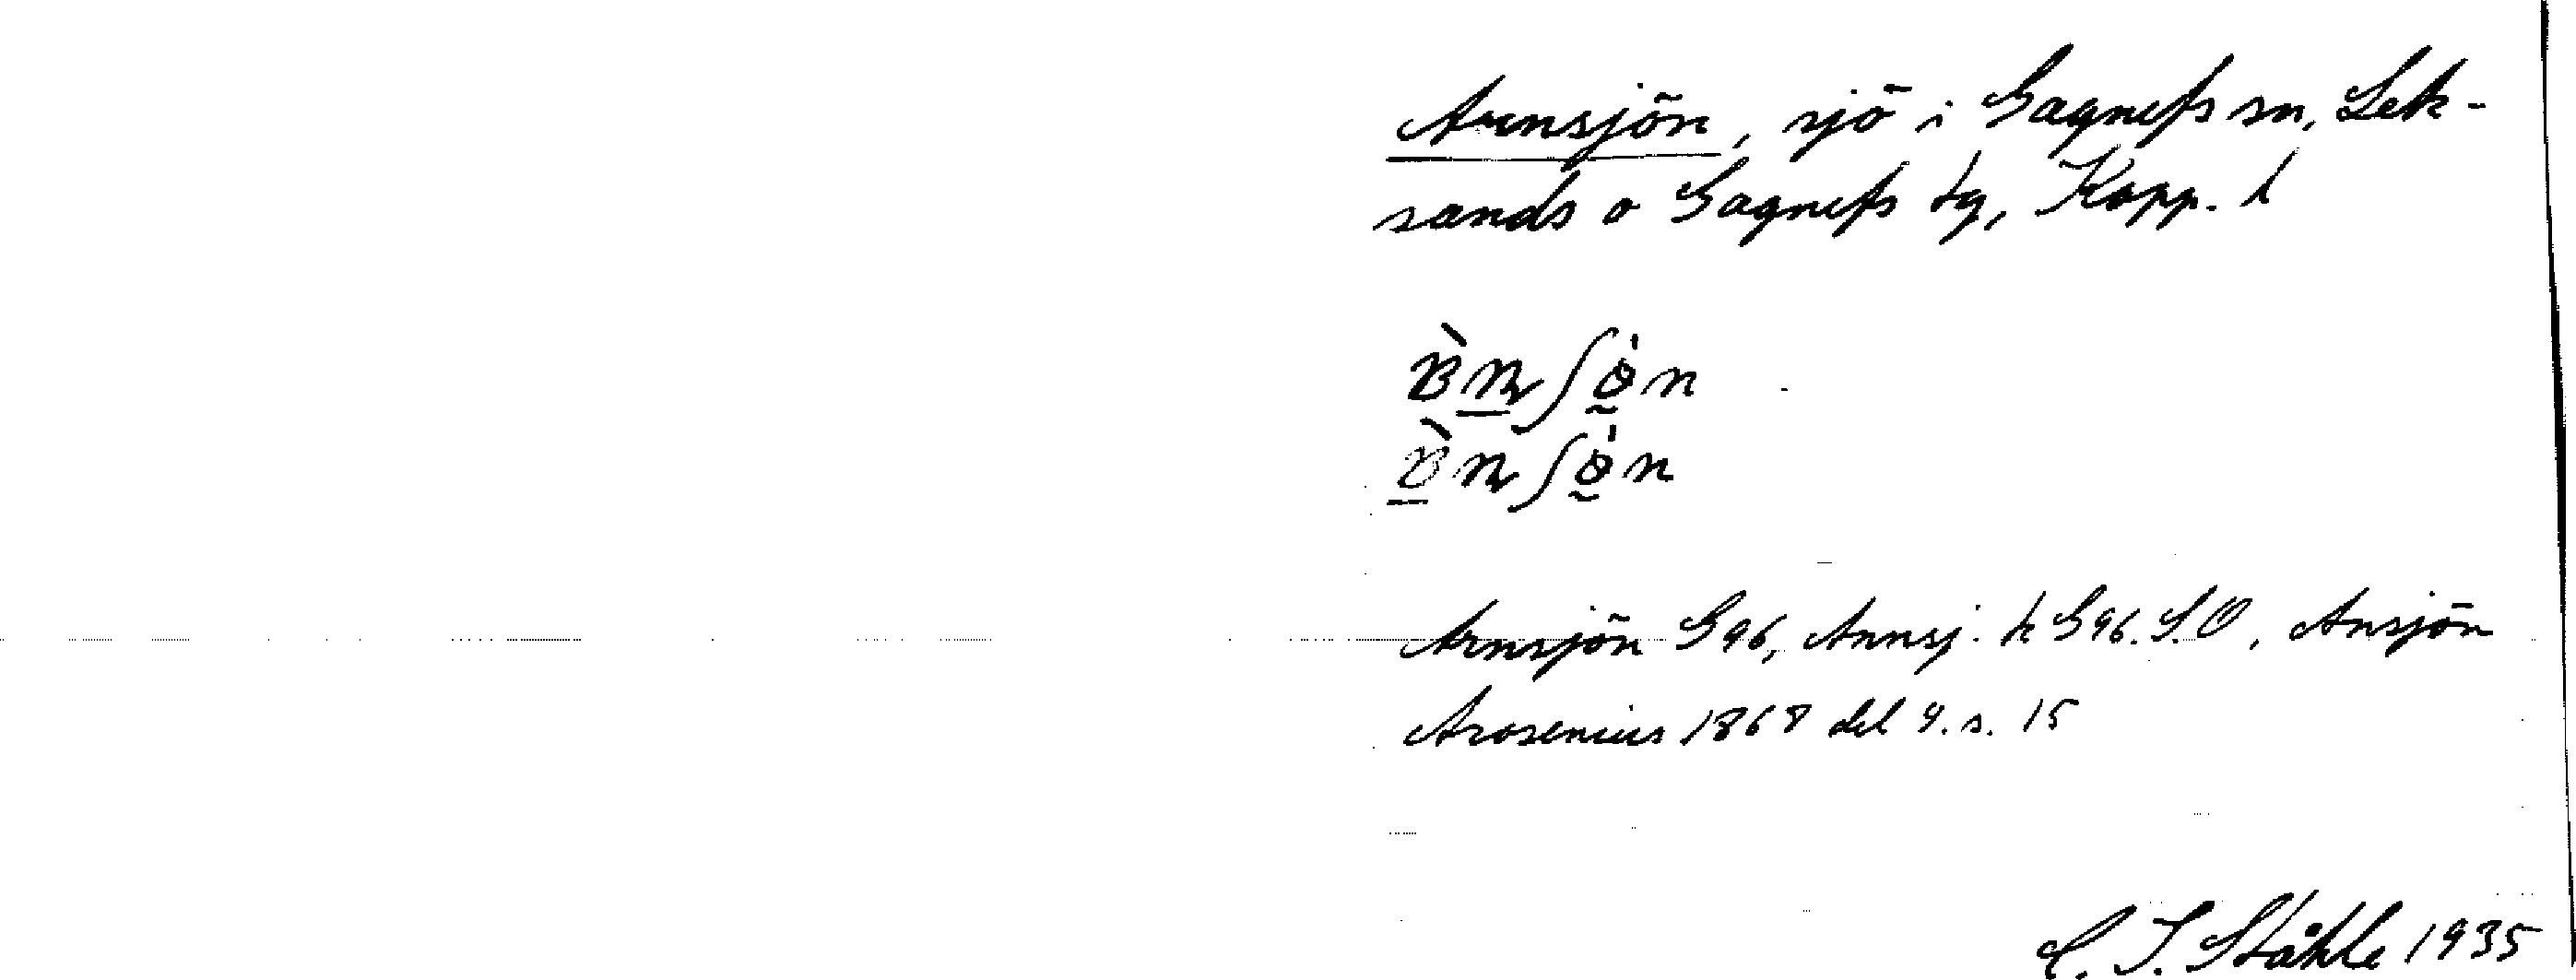 Arnsjön, sjö i Gagnefs sn, Lek-
sands o Gagnefs tg, Kopp. l
Arnsjön G96, Annsj. h G96. S.O, Ansjön
Arosenius 1868 del 4. s. 15
C. I. Ståhle 1935